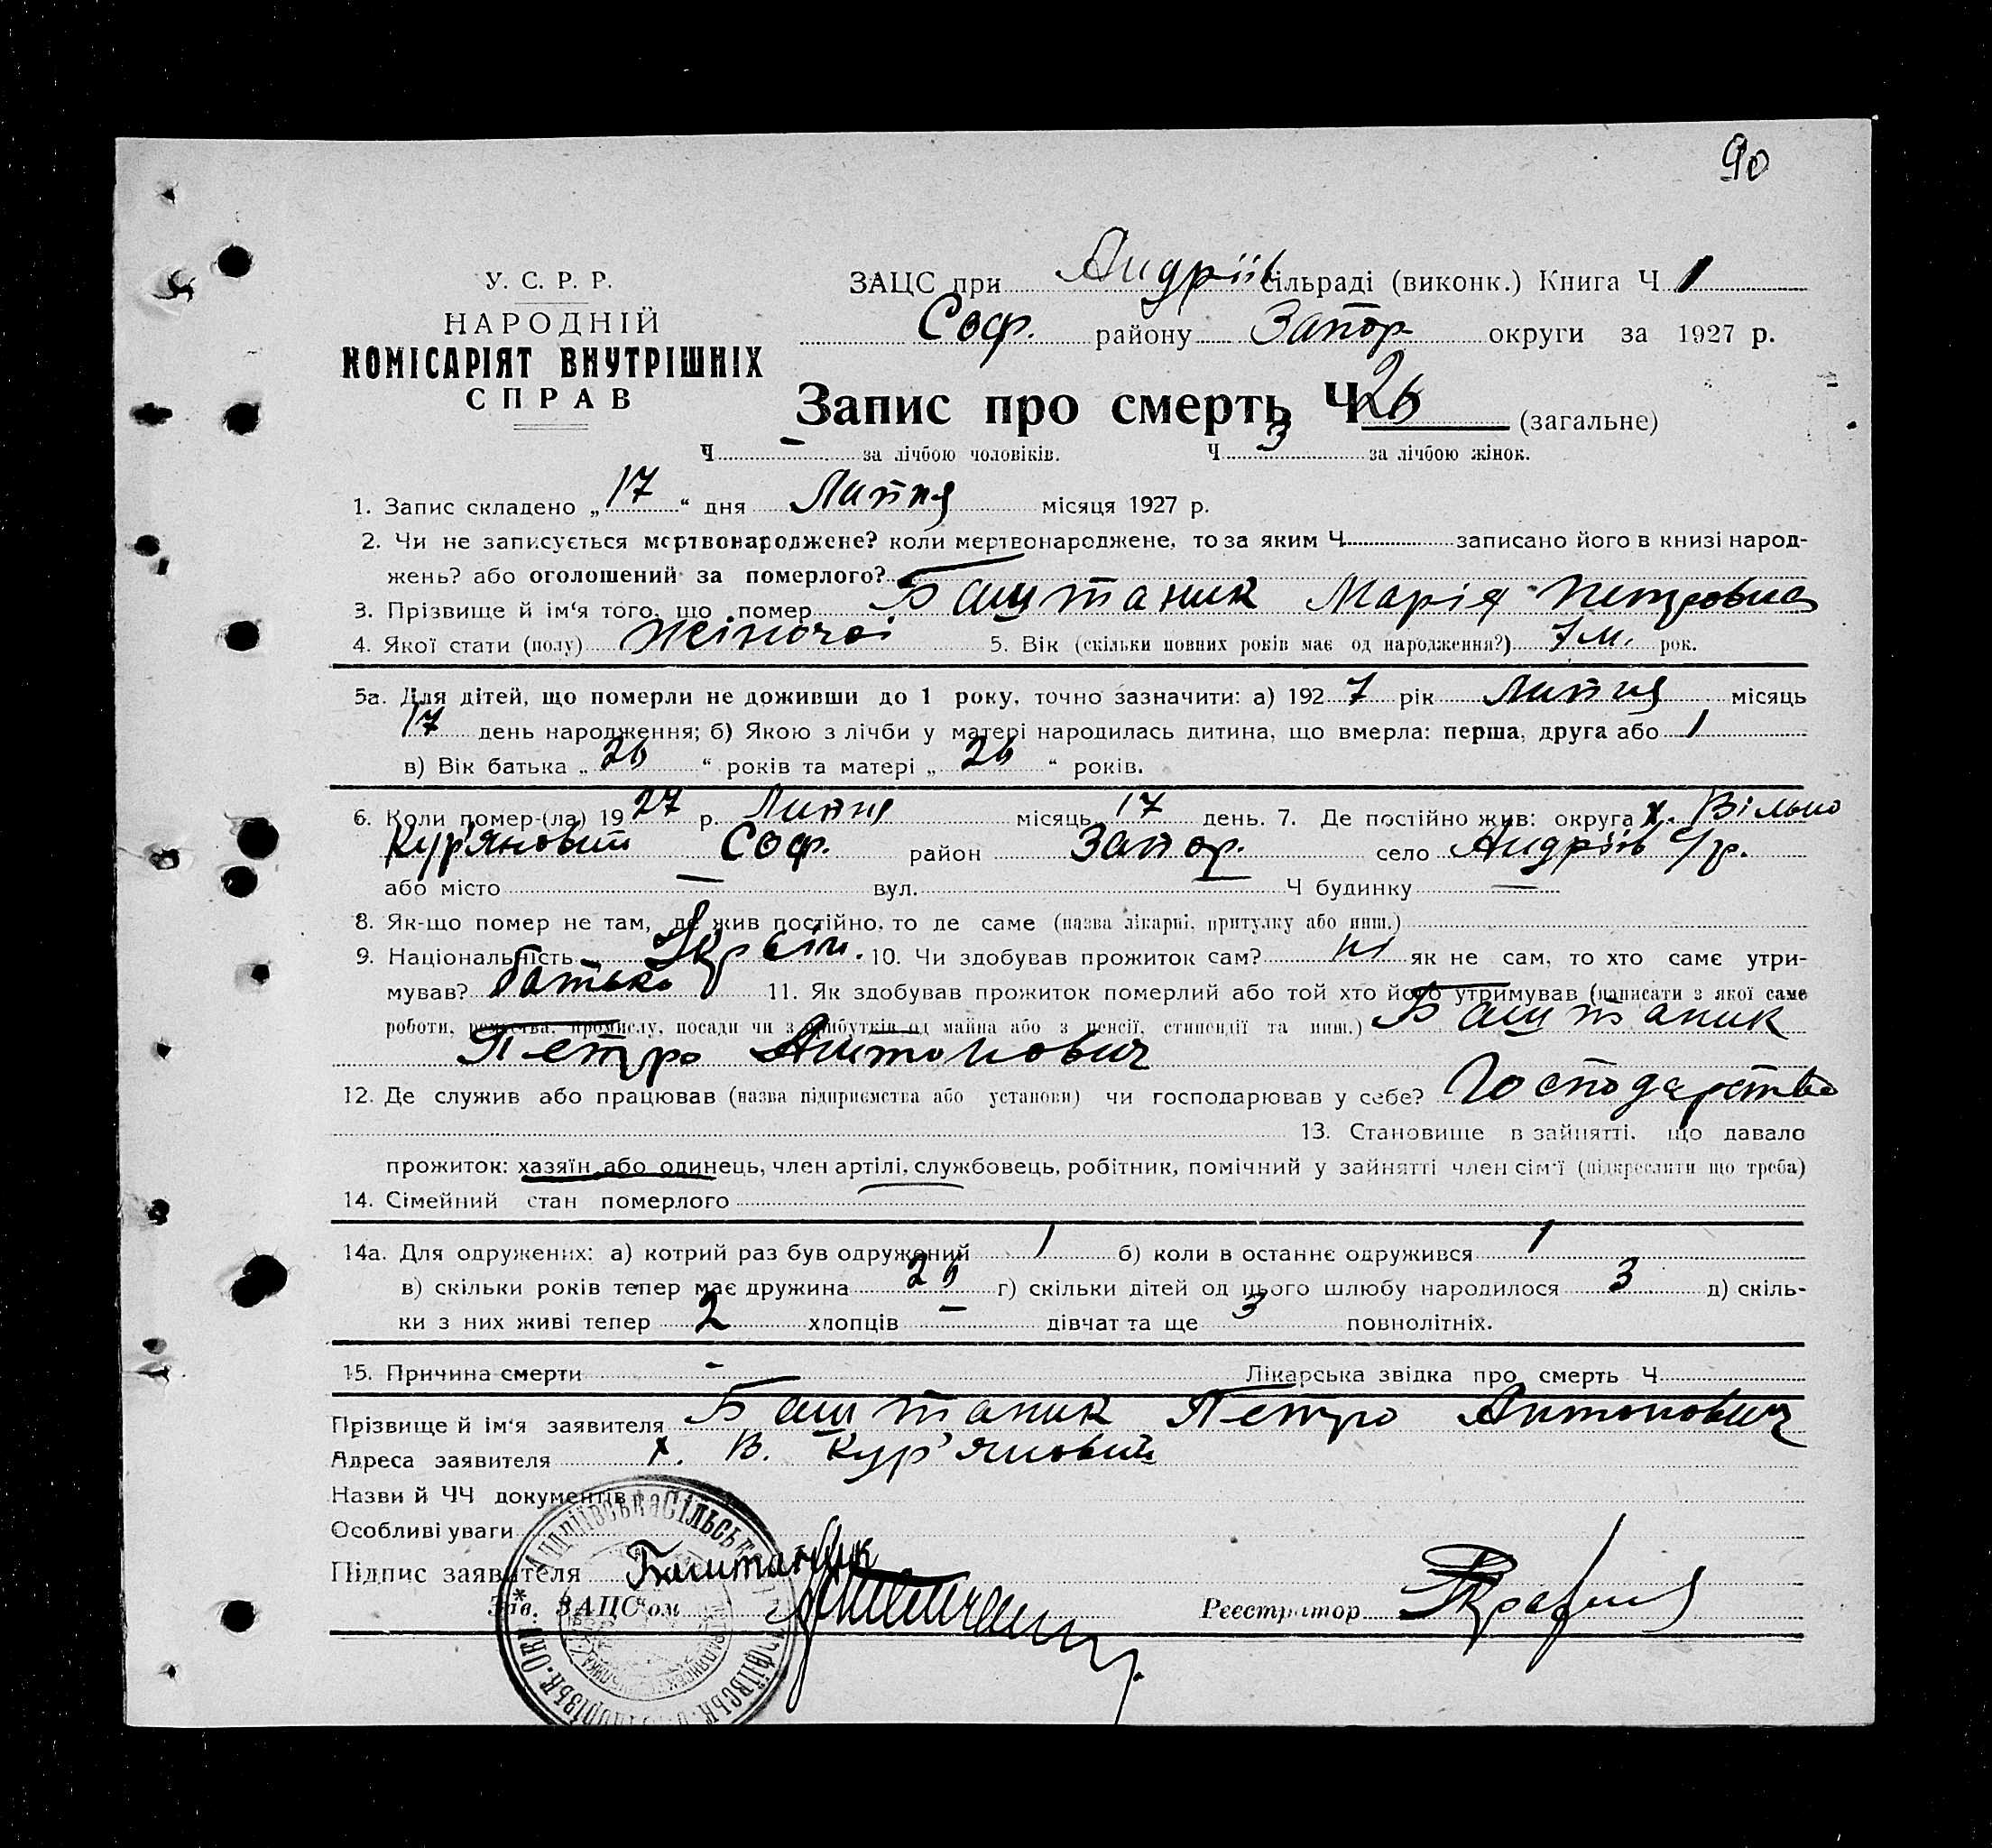 90
У. С. Р. Р.
НАРОДНІЙ
КОМІСАРІЯТ ВНУТРІШНІХ
СПРАВ
ЗАЦС при Андріїв сільраді (виконк.) Книга Ч 1
Соф. району Запор. округи за 1927 р.
Запис про смерть Ч 26 (загальне)
Ч - за лічбою чоловіків. Ч 3 за лічбою жінок.
1. Запис складено „ 17 “ дня Липня місяця 1927 р.
2. Чи не записується мертвонароджене? коли мертвонароджене, то за яким Ч записано його в книзі народ-
жень? або оголошений за померлого?
3. Прізвище й ім'я того, що помер Баштаник Марія Петровна
4. Якої стати (полу) Жіночої 5. Вік (скільки повних років має од народження?) 7 м. рок.
5а. Для дітей, що померли не доживши до 1 року, точно зазначити: а) 192 7 рік Липня місяць
17 день народження; б) Якою з лічби у матері народилась дитина, що вмерла: перша, друга або 1
в) Вік батька „ 26 “ років та матері „ 26 “ років.
6. Коли помер-(ла) 19 27 р. Липня місяць 17 день. 7. Де постійно жив: округа х. Вільно
Кур'яновий Соф. район Запор. село Андріїв с/р.
або місто — вул. — Ч будинку —
8. Як-що помер не там, де жив постійно, то де саме (назва лікарні, притулку або инш.)
9. Національність 10. Чи здобував прожиток сам? ні як не сам, то хто саме утри-
мував? батько 11. Як здобував прожиток померлий або той хто його утримував (написати з якої саме
роботи, ремества, промислу, посади чи з прибутків од майна або з пенсії, стипендії та инш.) Баштаник
Петро Антонович
12. Де служив або працював (назва підприємства або установи) чи господарював у себе? Господарство
13. Становище в зайнятті, що давало
прожиток: хазяїн або одинець, член артілі, службовець, робітник, помічний у зайнятті член сім'ї (підкреслити що треба)
14. Сімейний стан померлого
14а. Для одружених: а) котрий раз був одружений 1 б) коли в останнє одружився 1
в) скільки років тепер має дружина 26 г) скільки дітей од цього шлюбу народилося 3 д) скіль-
ки з них живі тепер 2 хлопців - дівчат та ще 3 повнолітніх.
15. Причина смерти - Лікарська звідка про смерть Ч
Прізвище й ім'я заявителя Баштаник Петро Антонович
Адреса заявителя х. В. Кур'яновий
Назви й ЧЧ документів
Особливі уваги
Підпис заявителя Баштаник
Зав. ЗАЦС'ом Реєстратор
Андріївська Сільськ